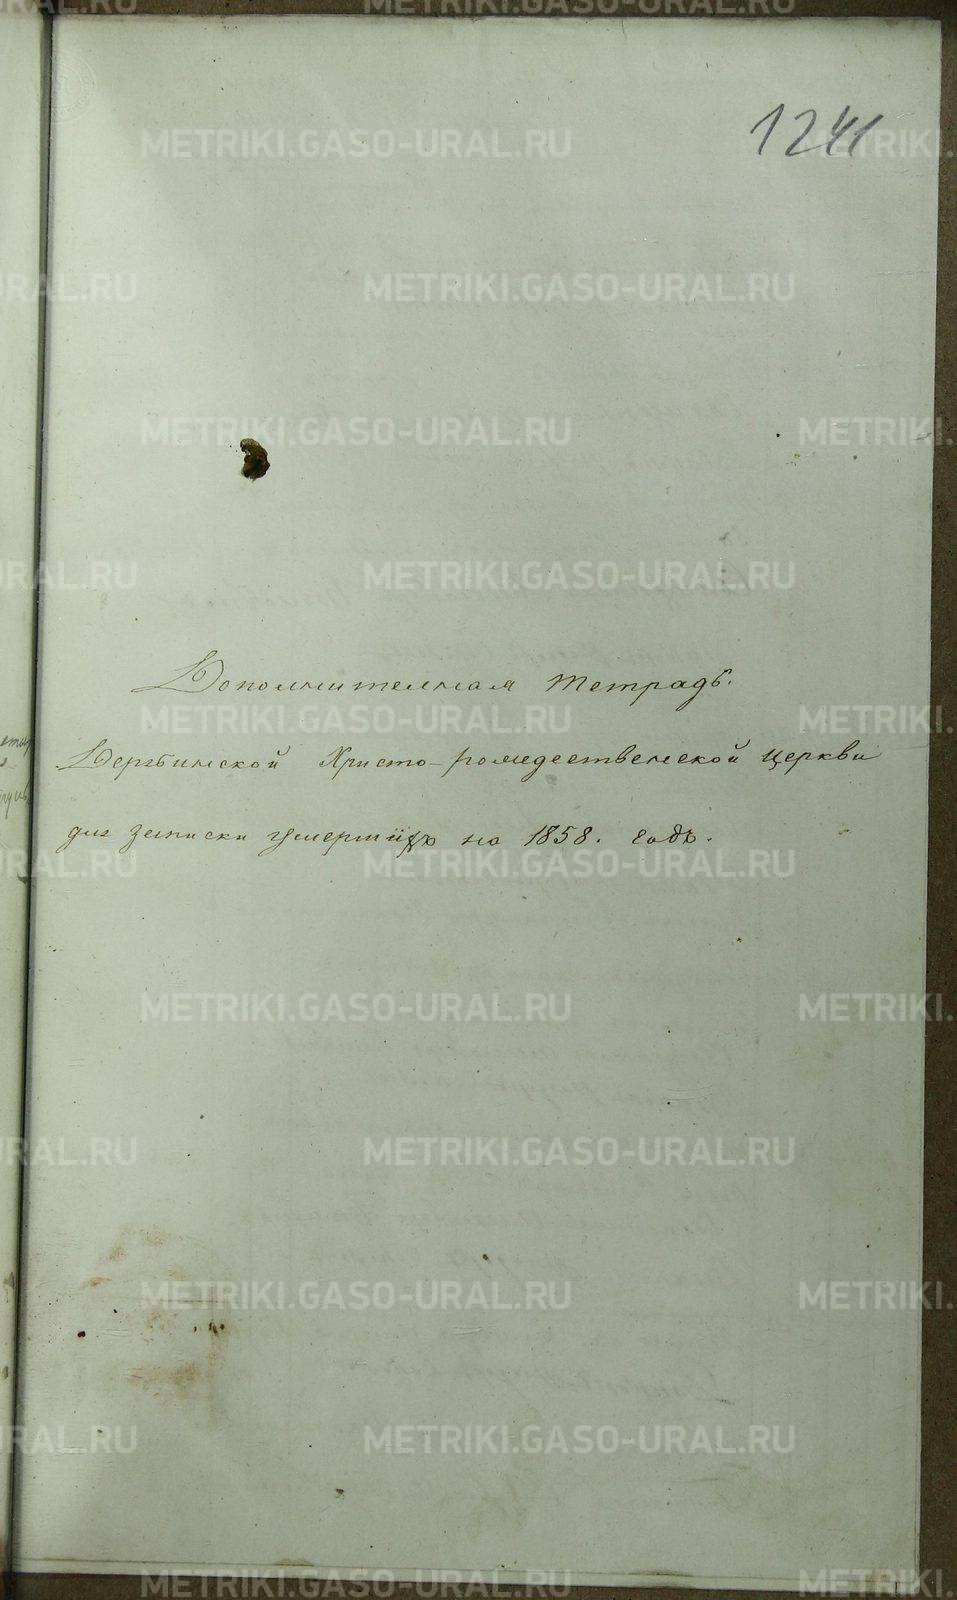 1241
Дополнителная тетрадь.
Дерябинской Христо-рождественской церкви
для записки умершихъ на 1858. годъ.
METRIKI.GASO-URAL.RU